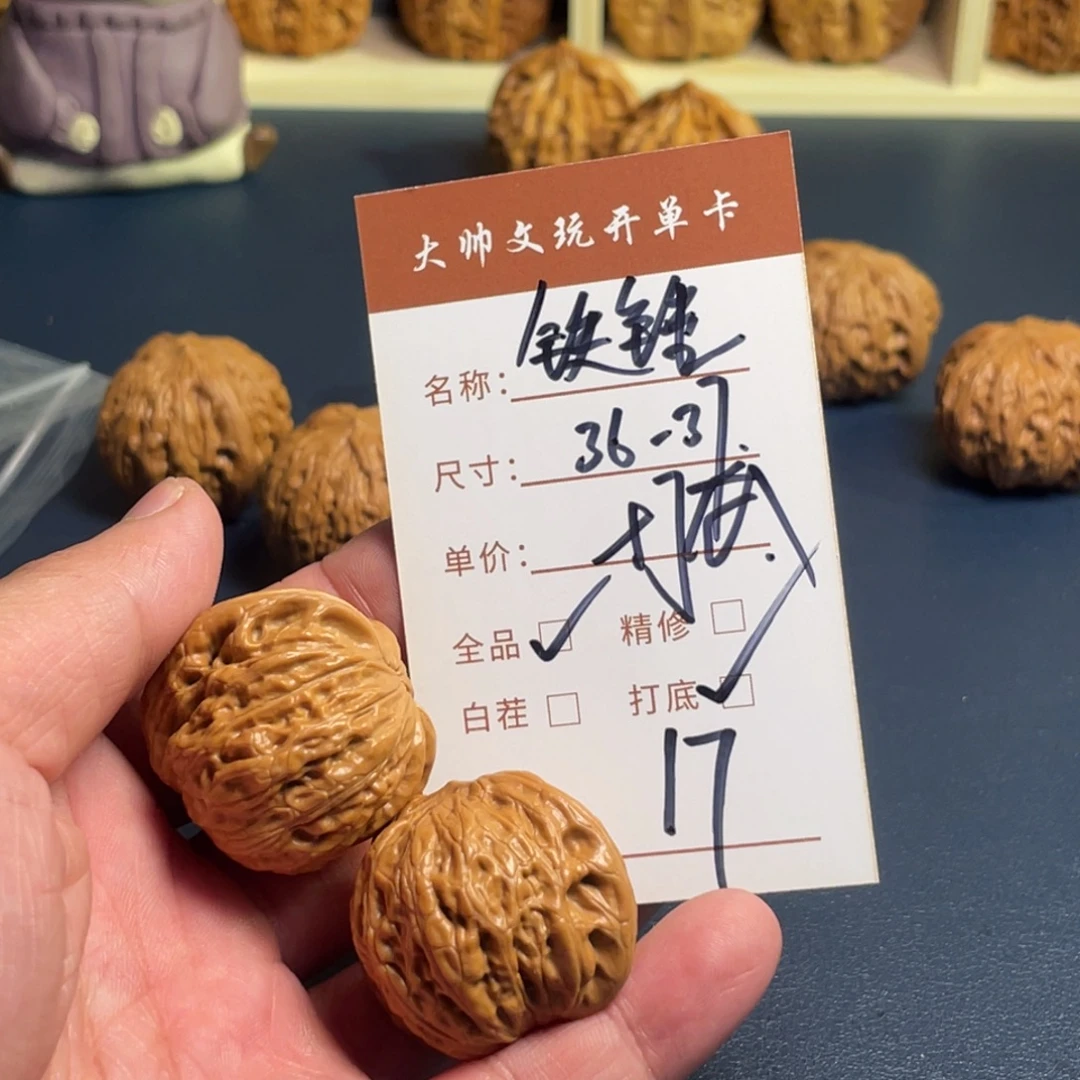 大帅文玩开单卡
名称：铁锤
尺寸：36-37.
单价：打底
全品 ✓ 精修 □
白茬 □ 打底 ✓
17